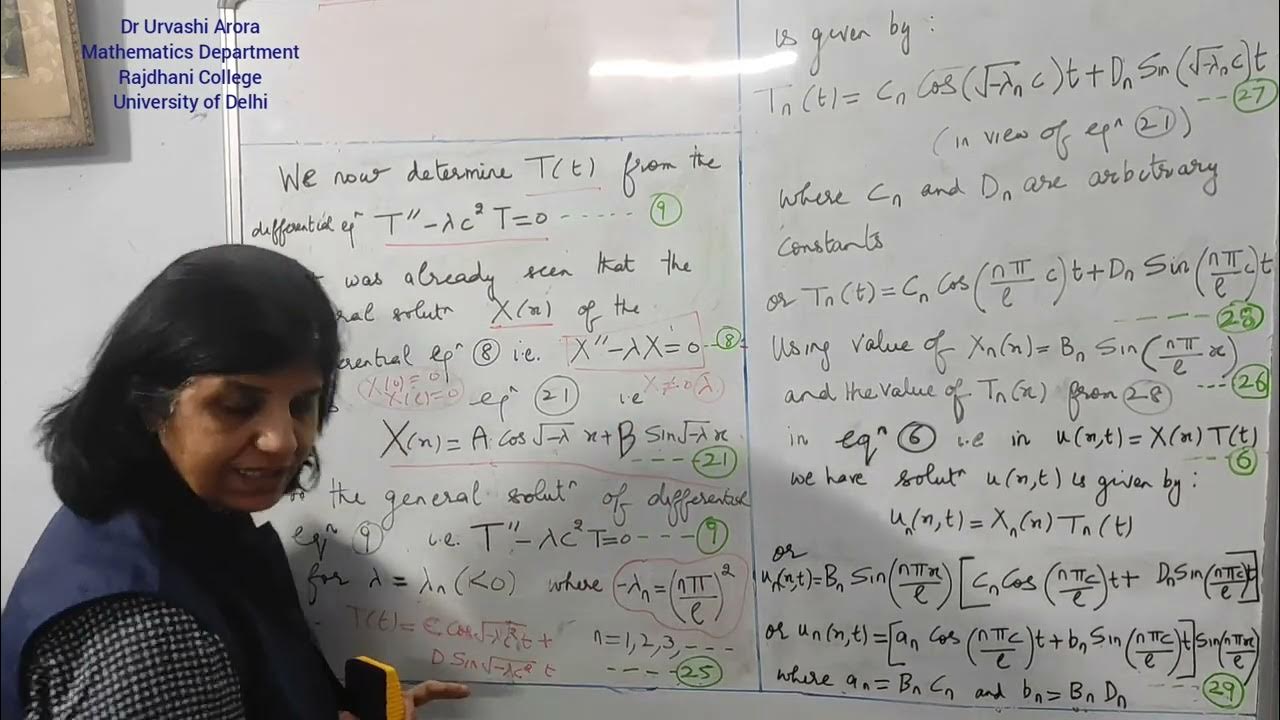 Dr Urvashi Arora
Mathematics Department
Rajdhani College
University of Delhi
We now determine T(t) from the
differential eqⁿ T″ − λc² T = 0 ------ ⑨
was already seen that the
ral solutⁿ X(x) of the
erential eqⁿ ⑧ i.e. X″ − λX = 0 -- ⑧
X(0) = 0
X(l) = 0
eqⁿ (21) i.e
X(x) = A cos √-λ x + B Sin √-λ x
---- (21)
the general solutⁿ of differential
eqⁿ ⑨ i.e. T″ − λc² T = 0 --- ⑨
for λ = λₙ (<0) where -λₙ = (nπ/l)²
T(t) = C cos √-λc² t +
D Sin √-λc² t
n = 1, 2, 3, ----
---- (25)
is given by :
Tₙ(t) = Cₙ Cos(√-λₙ c)t + Dₙ Sin(√-λₙ c)t
--- (27)
(in view of eqⁿ (21))
where Cₙ and Dₙ are arbitrary
constants
or Tₙ(t) = Cₙ Cos(nπ/l c)t + Dₙ Sin(nπ/l c)t
------ (28)
Using value of Xₙ(x) = Bₙ Sin(nπ/l x)
--- (26)
and the value of Tₙ(x) from (28)
in eqⁿ ⑥ i.e in u(x,t) = X(x) T(t)
---- ⑥
we have solutⁿ u(x,t) is given by :
uₙ(x,t) = Xₙ(x) Tₙ(t)
or
uₙ(x,t) = Bₙ Sin(nπx/l) [Cₙ Cos(nπc/l)t + Dₙ Sin(nπc/l)t]
or uₙ(x,t) = [aₙ Cos(nπc/l)t + bₙ Sin(nπc/l)t] Sin(nπx/l)
---- (29)
where aₙ = Bₙ Cₙ and bₙ = Bₙ Dₙ